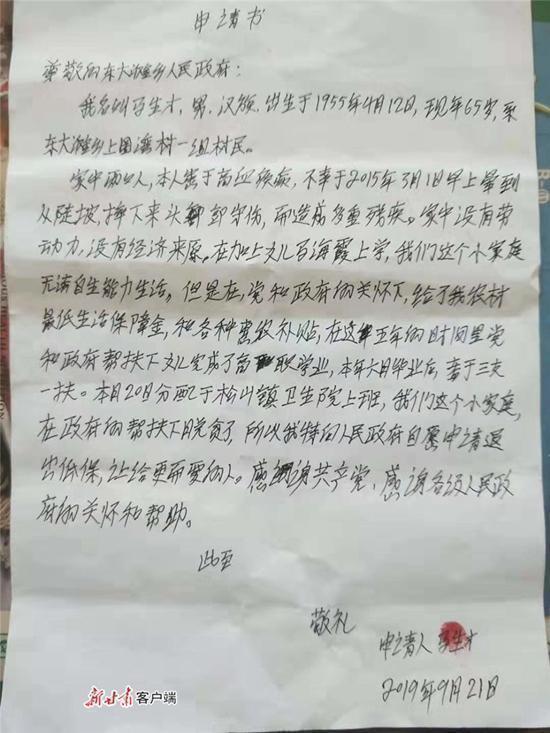 申请书
尊敬的东大滩乡人民政府:
我名叫马生才,男,汉族,出生于1955年4月12日,现年65岁,系
东大滩乡上圈湾村一组村民。
家中两口人,本人患于高血疾病,不幸于2015年3月1日早上晕到
从陡坡,摔下来头部守伤,而造成多重残疾。家中没有劳
动力,没有经济来原。在加上女儿马海霞上学,我们这个小家庭
无满自生能力生活,但是在,党和政府的关怀下,给了我农村
最低生活保障金,和各种惠农补贴,在这五年的时间里党
和政府帮扶下女儿完成了高职学业,本年六月毕业后,考于三支
一扶。本月20日分配于松山镇卫生院上班,我们这个小家庭,
在政府的帮扶下脱贫了,所以我特向人民政府自愿申请退
出低保,让给更需要的人。感谢共产党,感谢各级人民政
府的关怀和帮助。
此至
敬礼
申请人 马生才
2019年9月21日
新甘肃 客户端